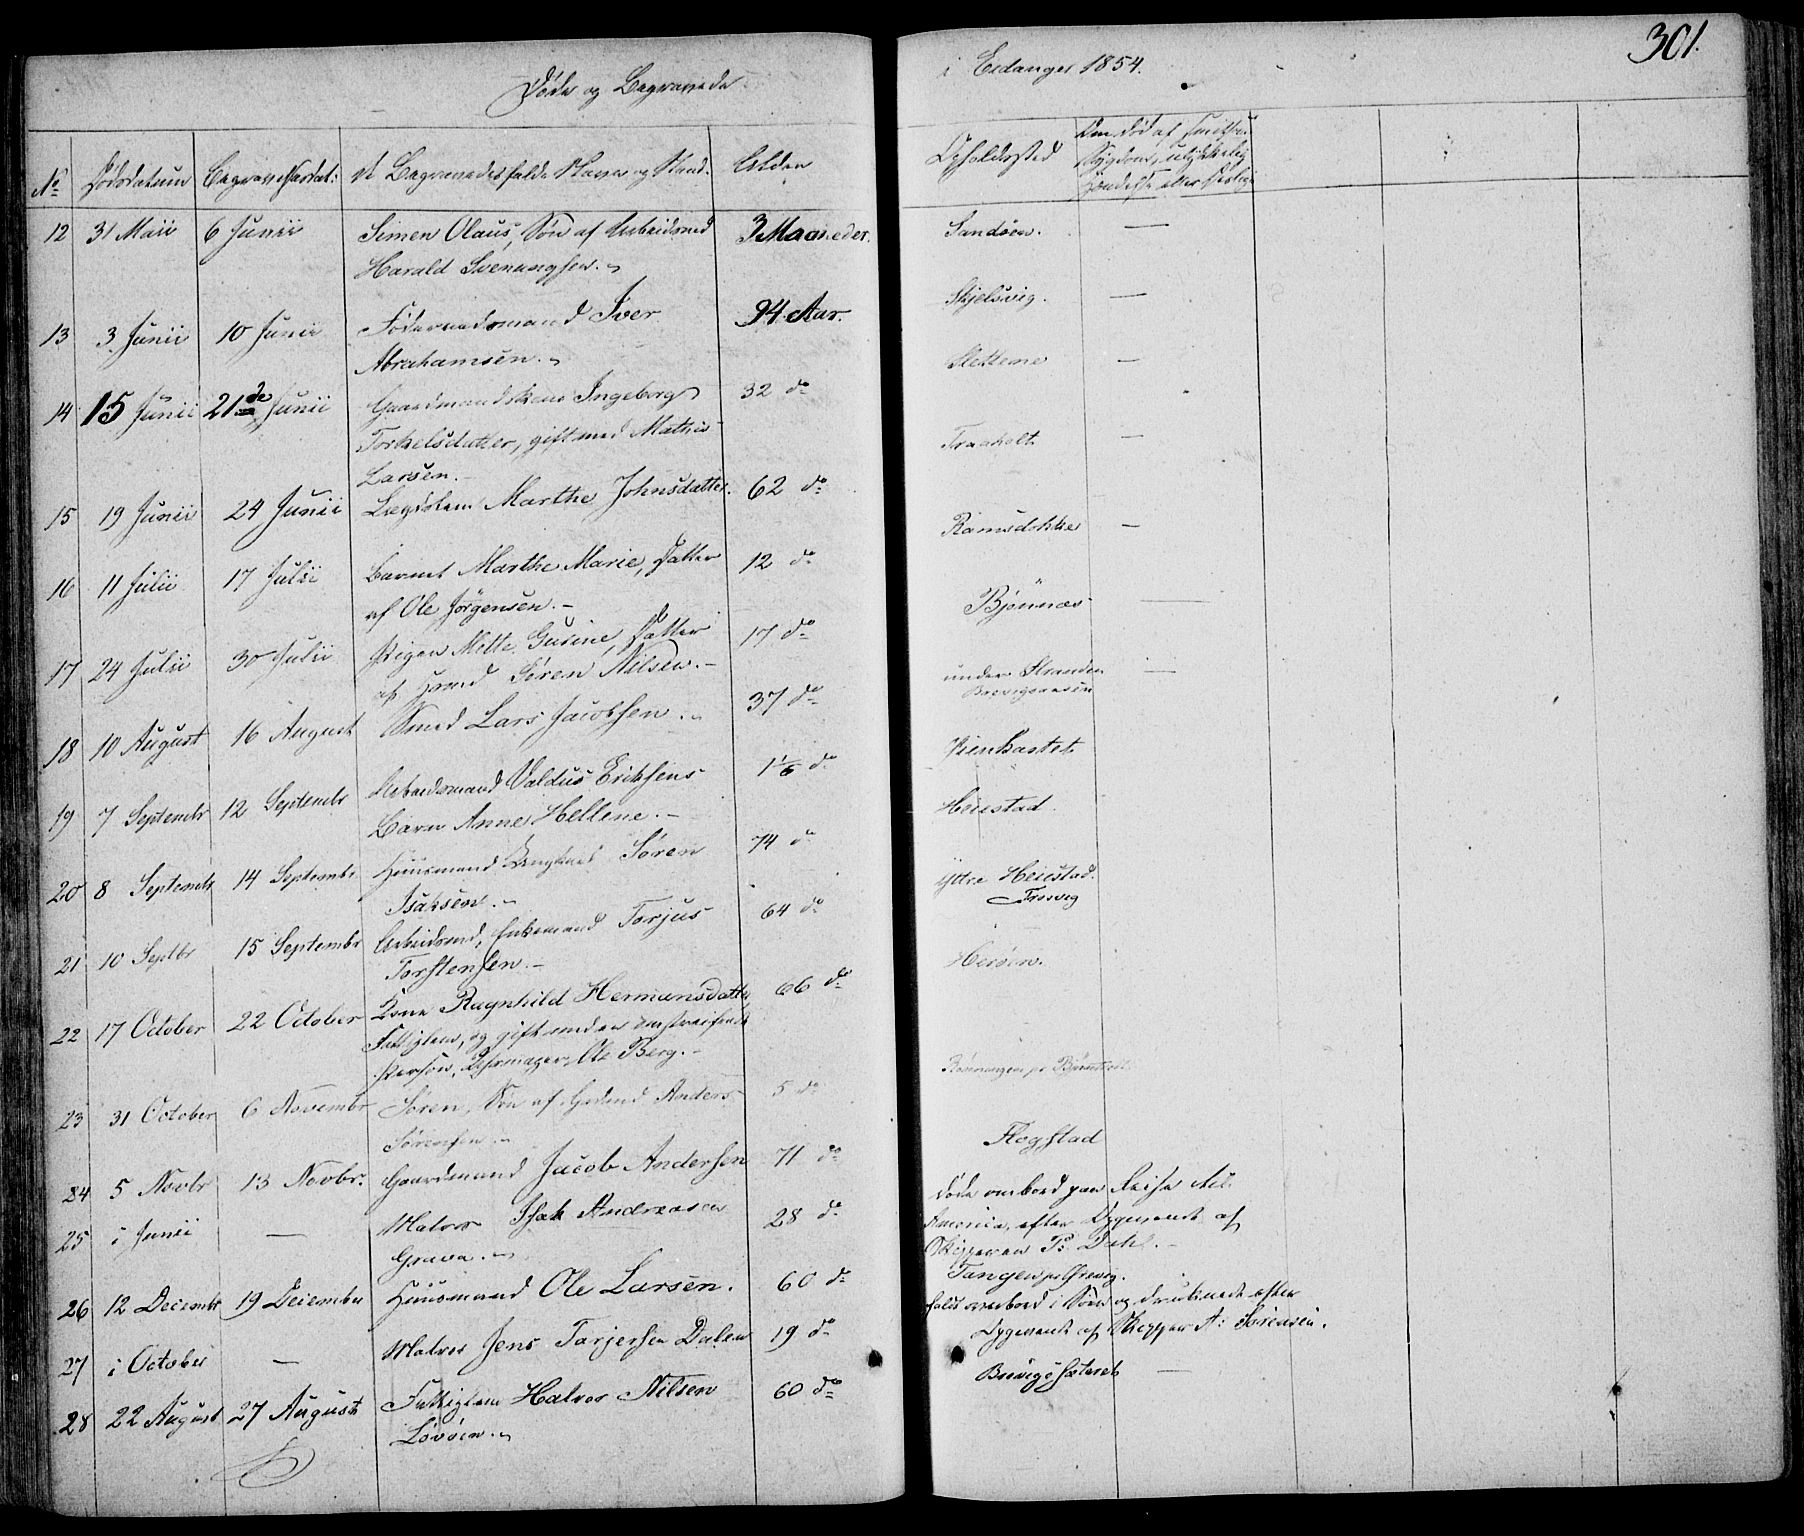 Døde og Begravede
i Eidanger 1854.
301.
No Dødsdatum Begravelsesdat: De Begravedes fulde Navn og Stand. Alder Opholdssted Om død af smitsom
Sygdom, ulykkelig
Hændelse eller deslige
12 31 Maii 6 Junii Simen Olaus, Søn af Arbeidsmd 3 Maaneder. Sandøen. —
Harald Svenungsen.
13 3 Junii 10 Junii Føderaadsmand Iver 94 Aar. Skjelsvig. —
Abrahamsen.
14 15 Junii 21de Junii Gaardmandskone Ingeborg 32 do Slettene —
Torkelsdatter, gift med Mathis
Larsen.
15 19 Junii 24 Junii Lægdslem Marthe Johnsdatter. 62 do Traaholt —
16 11 Julii 17 Julii Barnet Marthe Marie, Datter 12 do Ramsdokka —
af Ole Jörgensen.
17 24 Julii 30 Julii Pigen Mette Gurine, Datter 17 do Bjönnæs —
af Hmd Sören Nilsen.
18 10 August 16 August Smed Lars Jacobsen. 37 do under Stranden —
Brevigsaasen
19 7 Septembr 12 Septembr Arbeidsmand Valdus Eriksens 1 1/6 do
Barn Anne Hellene.
20 8 Septembr 14 Septembr. Huusmand Søren 74 do Heiestad.
Isaksen.
21 10 Septbr 15 Septembr Arbeidsmd, Enkemand Torjus 64 do Yttre Heiestad.
Torstensen. Frosvig
22 17 October 22 October Kone Ragnhild Hermansdatter, 66 do Herøen.
Fattiglem, og gift med en omstreifende
Person, Ole Berg.
23 31 October 6 Novembr Søren, Søn af Gaardmd Anders 5 do
Sørensen.
24 5 Novbr 13 Novbr. Gaardmand Jacob Andersen 71 do Flogstad
25 i Junii — Matros Isak Andreasen 28 do Døde ombord paa Reise til
Grava. America, efter Opgivende af
Skipperen P: Dahl.
26 12 Decembr 19 Decembr Huusmand Ole Larsen. 60 do Tangen
27 i October — Matros Jens Tarjersen Dalen 19 do faldt overbord i Søen og druknede efter
Opgivende af Skipper A: Sørensen.
28 22 August 27 August Fattiglem Halvor Nilsen 60 do —
Løvøen.